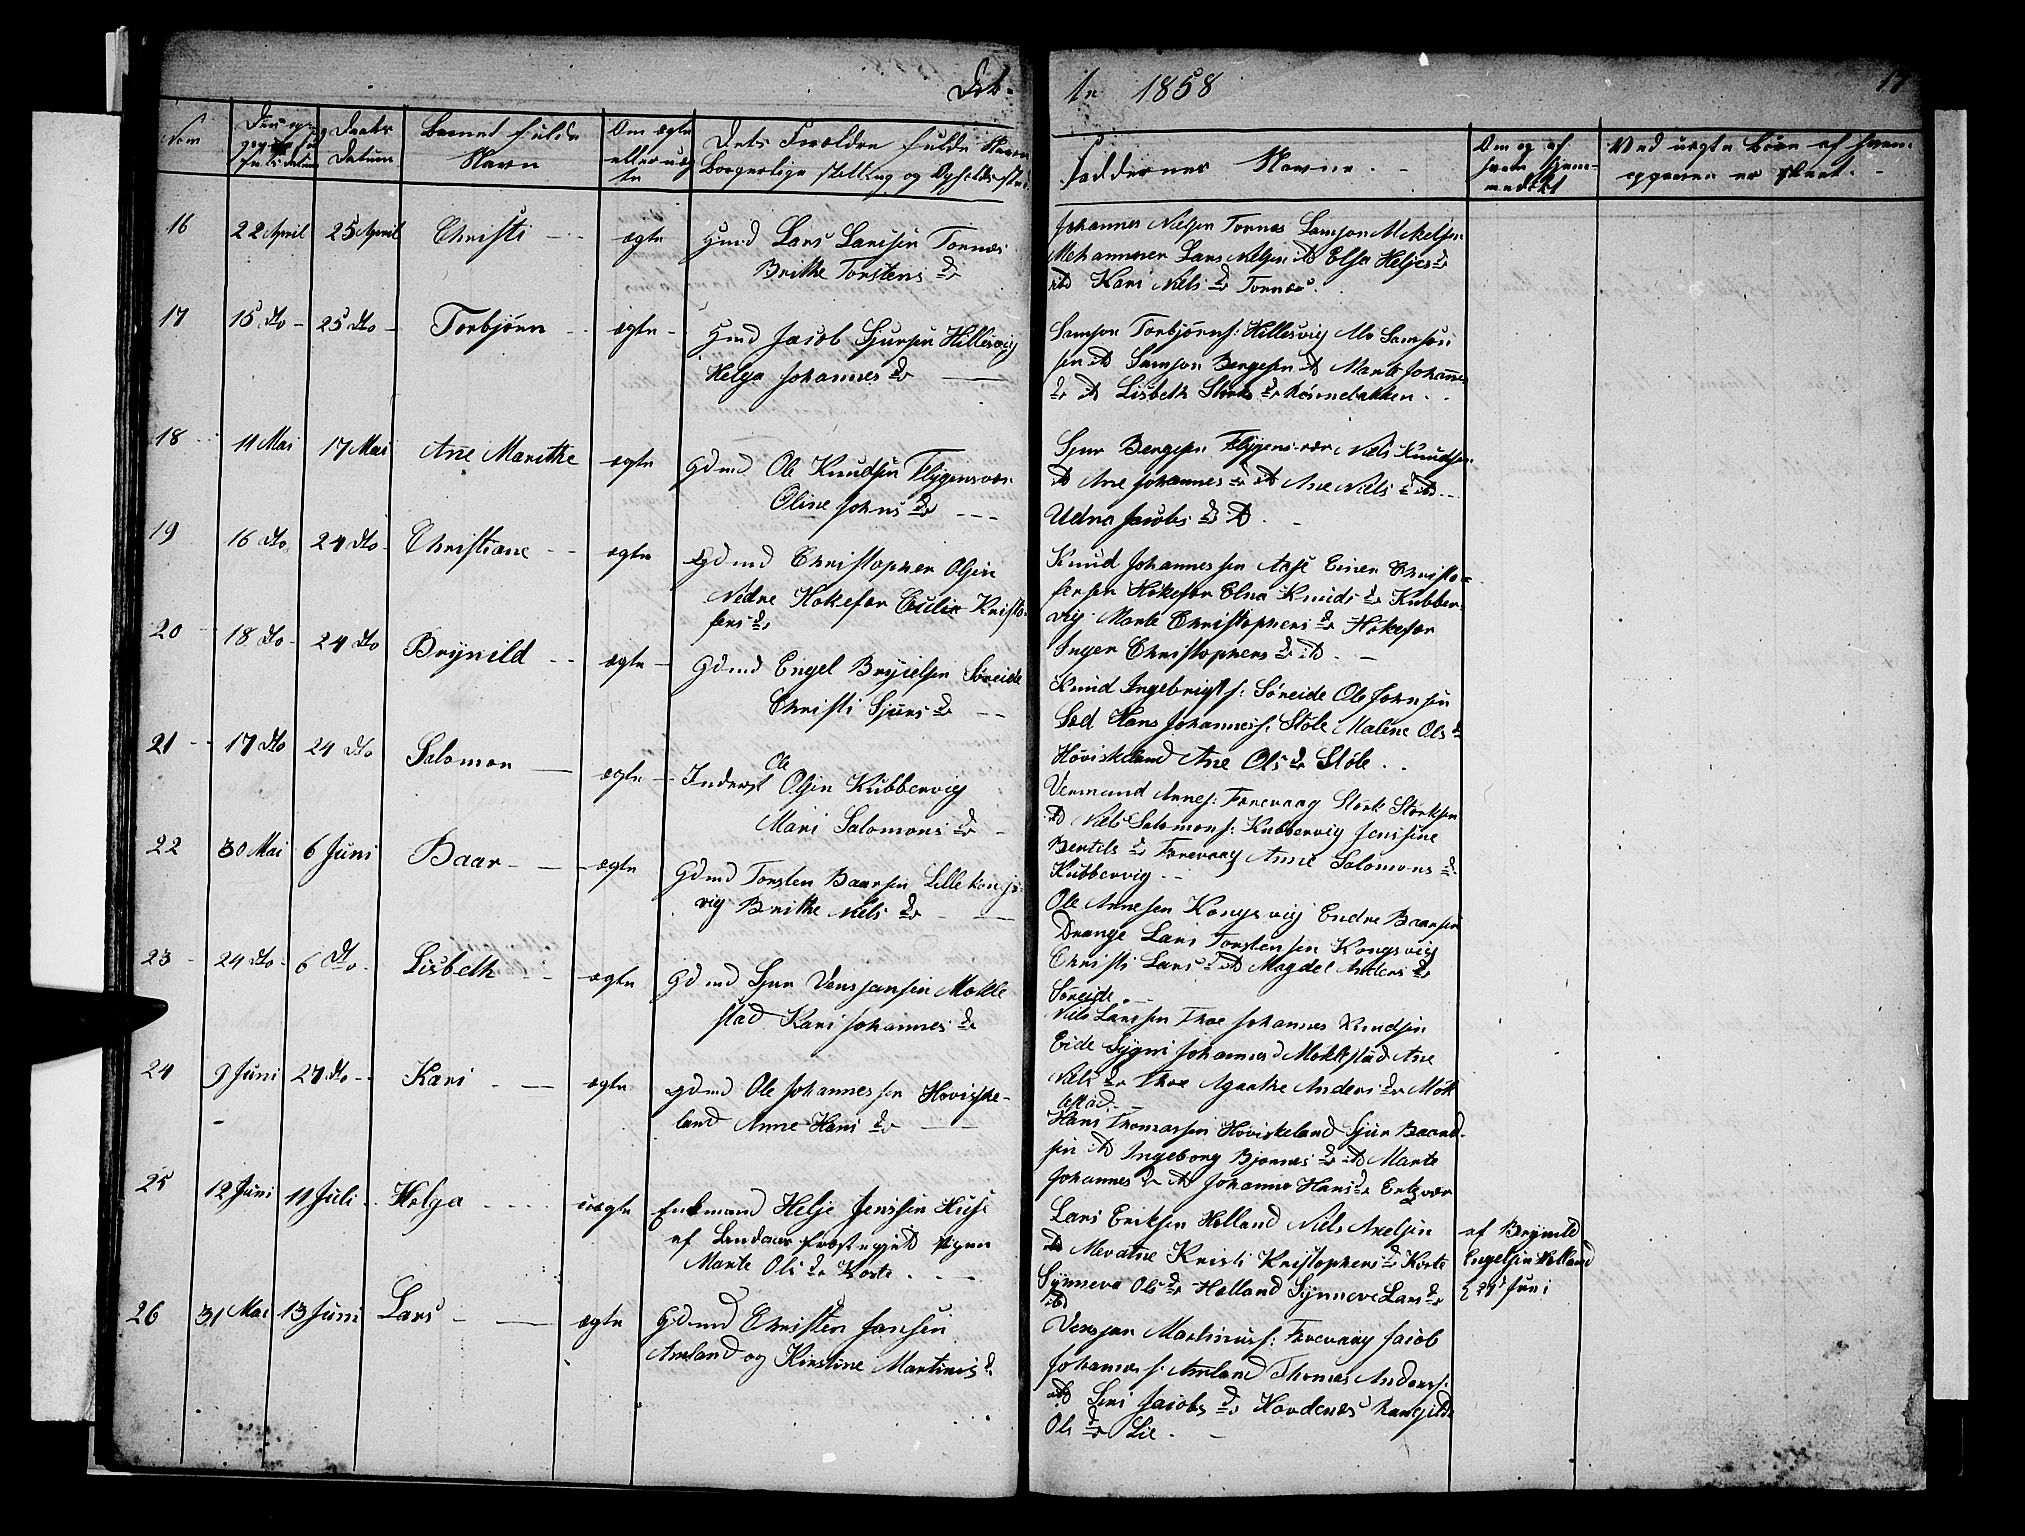 Døb-
te 1858
17
Num
Datum
Daabs
Datum
Barnets fulde
Navn
Om ægte
eller uæg
te
Dets Forældre fulde Navn
Borgerlige Stilling og Opholds sted
Faddernes Navne. -
Om og af
hvem hjem
medøbt
Ved uægte Børn af hvem
16 22 April 25 April Christi - ægte Hmd Lars Larssen Tornæs
Brithe Torstens Dr
Johannes Nielsen Tornæs Samson Mikelsen
Lars Nelsen ibd Elsa Heljes Dr
ibd Kari Niels Dr Tornæs.
17 15 dto - 25 dto - Torbjørn - ægte - Hmd Jacob Sjursen Hillesvig
Helga Johannes Dr -
Samson Torbjørns: Hillesvig Mo Samson
sen ibd Samson Bergesen ibd Marte Johannes
Dr ibd Lisbeth Størks Dr
18 11 Mai 17 Mai Ane Marithe ægte Gdmd Ole Knudsen Flygensvær
Oline Johns Dr - - -
Sjur Bergesen Flygensvær Niels Knudsen
ibd Ane Johannes Dr ibd Ane Niels Dr ibd
Udna Jacobs Dr ibd. -
19 16 dto 24 dto - Christiane - ægte Gdmd Christopher Olsen
Nedre Høkefær Cecilie Kristo-
fers Dr
Knud Johannessen Aase Einer Christo-
fersen Høkefær Elna Knuds Dr Kubber-
vig Marte Christophers Dr Høkefær
Inger Christophers Dr ibd. -
20 18 dto - 24 dto Brynild - - ægte - Gdmd Engel Brynelsen Søreide
Christi Sjurs Dr - -
Knud Ingebrigts: Søreide Ole Johnsen
Sæd Hans Johanness: Støle Malene Ols Dr
Høviskeland Ane Ols Dr Støle. .
21 - 17 dto 24 dto Salomon - ægte - Inderst Ole Olsen Kubbervig
Mari Salomons Dr -
Vermund Arnes: Færevaag Størk Størksen
ibd Niels Salomons: Kubbervig Jensine
Bertels Dr Færevaag Anne Salomons Dr
Kubbervig - -
22 30 Mai 6 Juni Baar - - - ægte Gdmd Torsten Baarsen Lille Kongs
vig Brithe Niels Dr - -
Ole Arnesen Kongsvig Endre Baarsen
Drange Lars Torstensen Kongsvig
Christi Lars Dr ibd Magdel Anders Dr
Søreide. -
23 - 24 dto - 6 Dto - Lisbeth - - ægte Gdmd Sjur Vensjansen Mokle
stad Kari Johannes Dr
Niels Larssen Thoe Johannes Knudsen
Eide Sygni Johannes Moklestad Ane
Niels Dr Thoe Agathe Anders Dr Mok
lestad. -
24 9 Juni 27 dto - - Kari - - ægte Gdmd Ole Johannessen Høviske-
land Anne Hans Dr - -
Hans Thomassen Høviskeland Sjur Baard-
sen ibd Ingeborg Bjørnes Dr ibd Marte
Johannes Dr ibd Johanne Hans Dr
25 12 Juni 11 Juli - Helga - - - - uægte Enkmand Helje Jenssen Huse
af Præstegjeld Pigen
Marte Ols Dr Korte. - -
Lars Eriksen Helland Niels Axelsen
ibd Kristi Kristophers Dr Korte
Synneva Ols Dr Helland Synneve Lars Dr
ibd
af Brynild
Engelsen Helland
d 29 Juni
26 31 Mai 13 Juni Lars - - ægte Gdmd Christen Jansen
Amland og Kirstine Martinus Dr
Vensjan Martinuss: Færevaag Jacob
Johannes s: Amland Thomas Anders s:
ibd Seri Jacobs Dr Hovdenæs
Ols Dr Lie. -